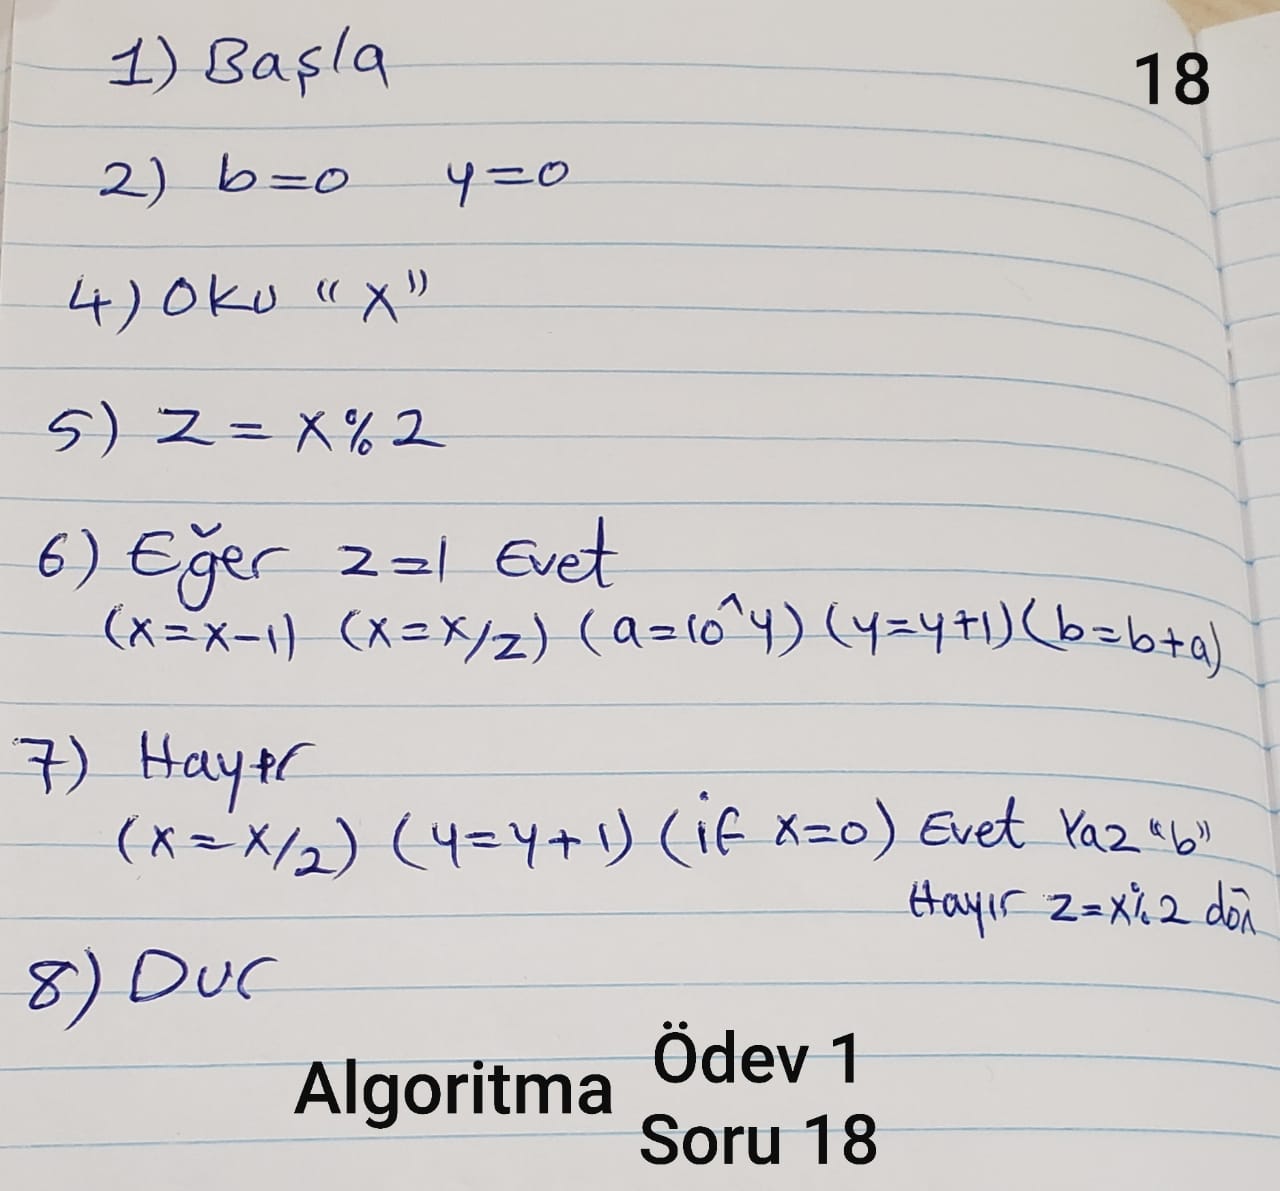 18
1) Başla
2) b=0 y=0
4) Oku "x"
5) Z = x%2
6) Eğer z=1 Evet
(x=x-1) (x=x/2) (a=10^y) (y=y+1) (b=b+a)
7) Hayır
(x=x/2) (y=y+1) (if x=0) Evet Yaz "b"
Hayır z=x%2 dön
8) Dur
Algoritma
Ödev 1
Soru 18